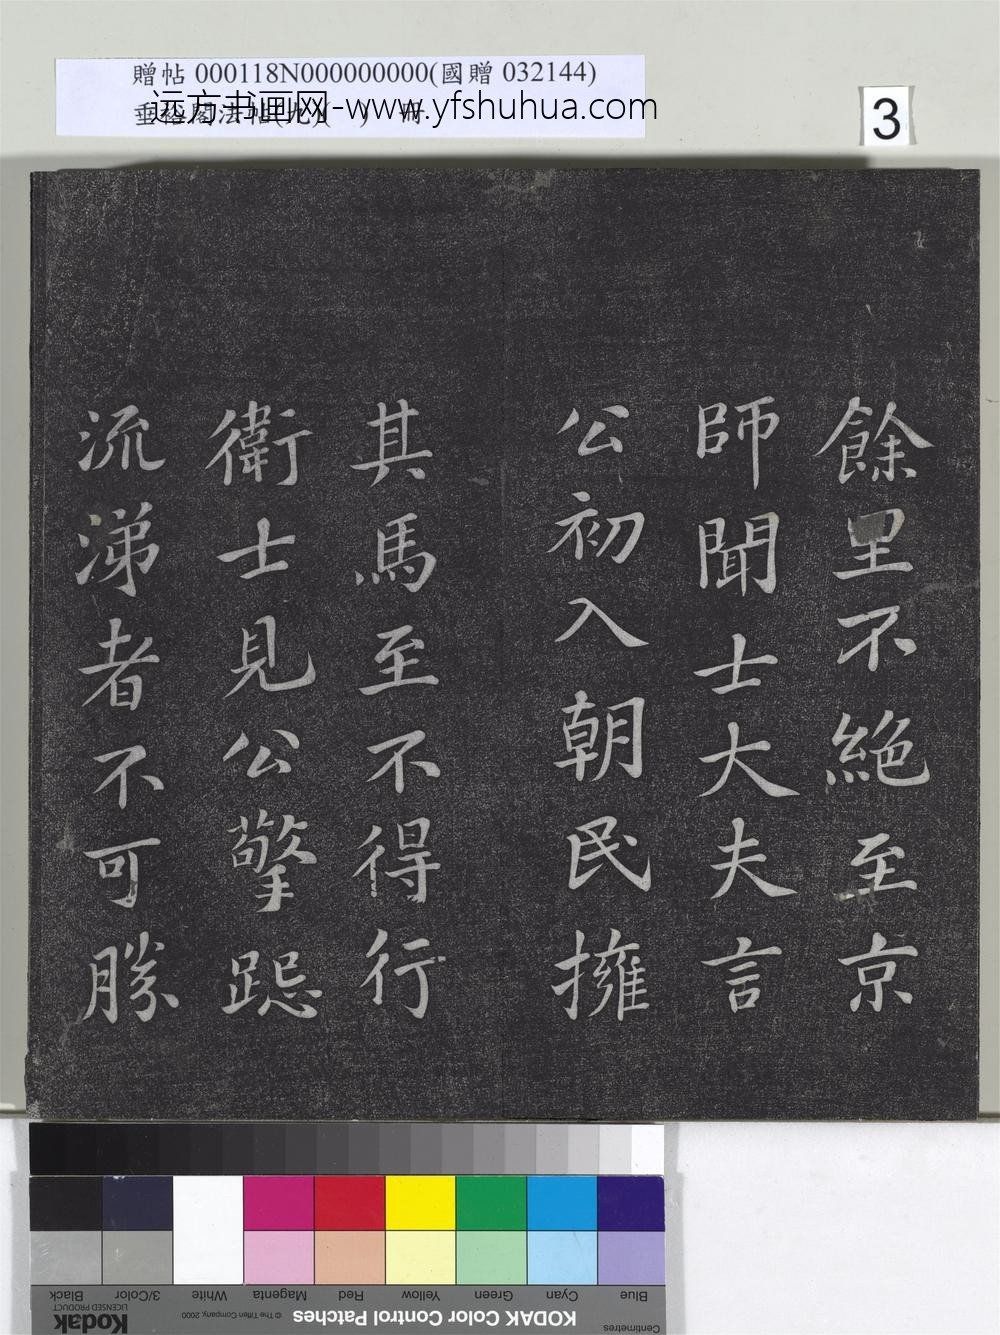 贈帖 000118N000000000(國贈 032144)
远方书画网-www.yfshuhua.com
3
餘里不絕至京
師聞士大夫言
公初入朝民擁
其馬至不得行
衛士見公擎跽
流涕者不可勝
Blue Cyan Green Yellow Red Magenta White 3/Color Black
Centimetres KODAK Color Control Patches © The Tiffen Company, 2000 Kodak
LICENSED PRODUCT